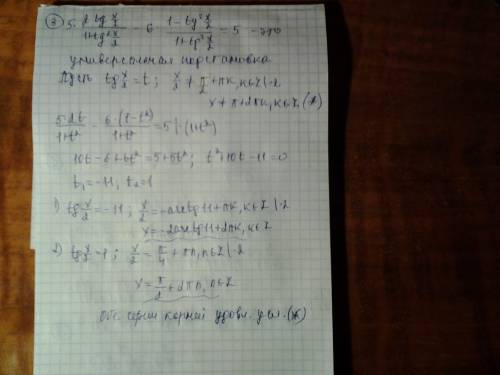 ③ 5·(2tg x/2)/(1+tg² x/2) − 6·(1−tg² x/2)/(1+tg² x/2) = 5 − это
универсальная подстановка
Пусть tg x/2 = t; x/2 ≠ π/2 + πk, k∈Z |·2
x ≠ π + 2πk, k∈Z (*)
5·2t/(1+t²) − 6·(1−t²)/(1+t²) = 5 |·(1+t²)
10t − 6 + 6t² = 5 + 5t²; t² + 10t − 11 = 0
t₁ = −11, t₂ = 1
1) tg x/2 = −11; x/2 = −arctg 11 + πk, k∈Z |·2
x = −2arctg 11 + 2πk, k∈Z
2) tg x/2 = 1; x/2 = π/4 + πn, n∈Z |·2
x = π/2 + 2πn, n∈Z
Обе серии корней удовл. усл. (*)